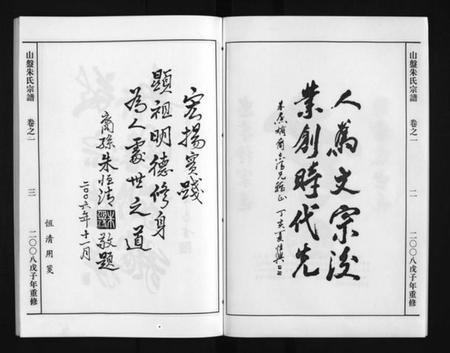 山盤朱氏宗譜
卷之一
二
二〇〇八戊子年重修
人為文宗後
業創時代先
宏揚實踐
顯祖明德修身
為人處世之道
裔孫朱恒清
敬題
二〇〇六年十一月
恒清用箋
山盤朱氏宗譜
卷之一
三
二〇〇八戊子年重修